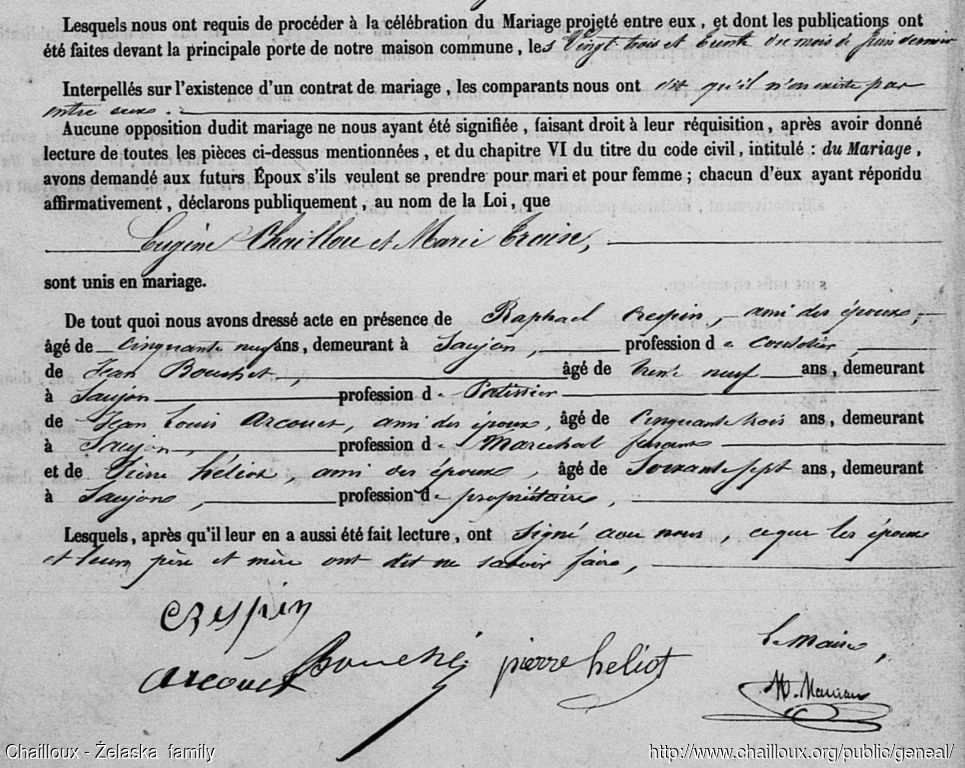 Lesquels nous ont requis de procéder à la célébration du Mariage projeté entre eux, et dont les publications ont
été faites devant la principale porte de notre maison commune, les Vingt trois et trente du mois de Juin dernier
Interpellés sur l'existence d'un contrat de mariage, les comparants nous ont dit qu'il n'en existe pas
entre eux.
Aucune opposition dudit mariage ne nous ayant été signifiée, faisant droit à leur réquisition, après avoir donné
lecture de toutes les pièces ci-dessus mentionnées, et du chapitre VI du titre du code civil, intitulé : du Mariage,
avons demandé aux futurs Époux s'ils veulent se prendre pour mari et pour femme ; chacun d'eux ayant répondu
affirmativement, déclarons publiquement, au nom de la Loi, que
Eugène Chaillou et Marie
sont unis en mariage.
De tout quoi nous avons dressé acte en présence de Raphael Crespin, ami des époux,
âgé de cinquante neuf ans, demeurant à Saujon, profession de Cordier,
de Jean Bouchet, âgé de trente neuf ans, demeurant
à Saujon profession de Patissier
de Jean Louis Arcouet, ami des époux, âgé de Cinquante trois ans, demeurant
à Saujon, profession de Maréchal ferrant
et de Pierre héliot, ami des époux, âgé de Soixante sept ans, demeurant
à Saujon, profession de propriétaire,
Lesquels, après qu'il leur en a aussi été fait lecture, ont Signé avec nous, ce que les époux
et leurs père et mère ont dit ne savoir faire,
crespin
Le maire,
arcouet Bouchet pierre heliot
Chailloux - Żelaska family http://www.chailloux.org/public/geneal/